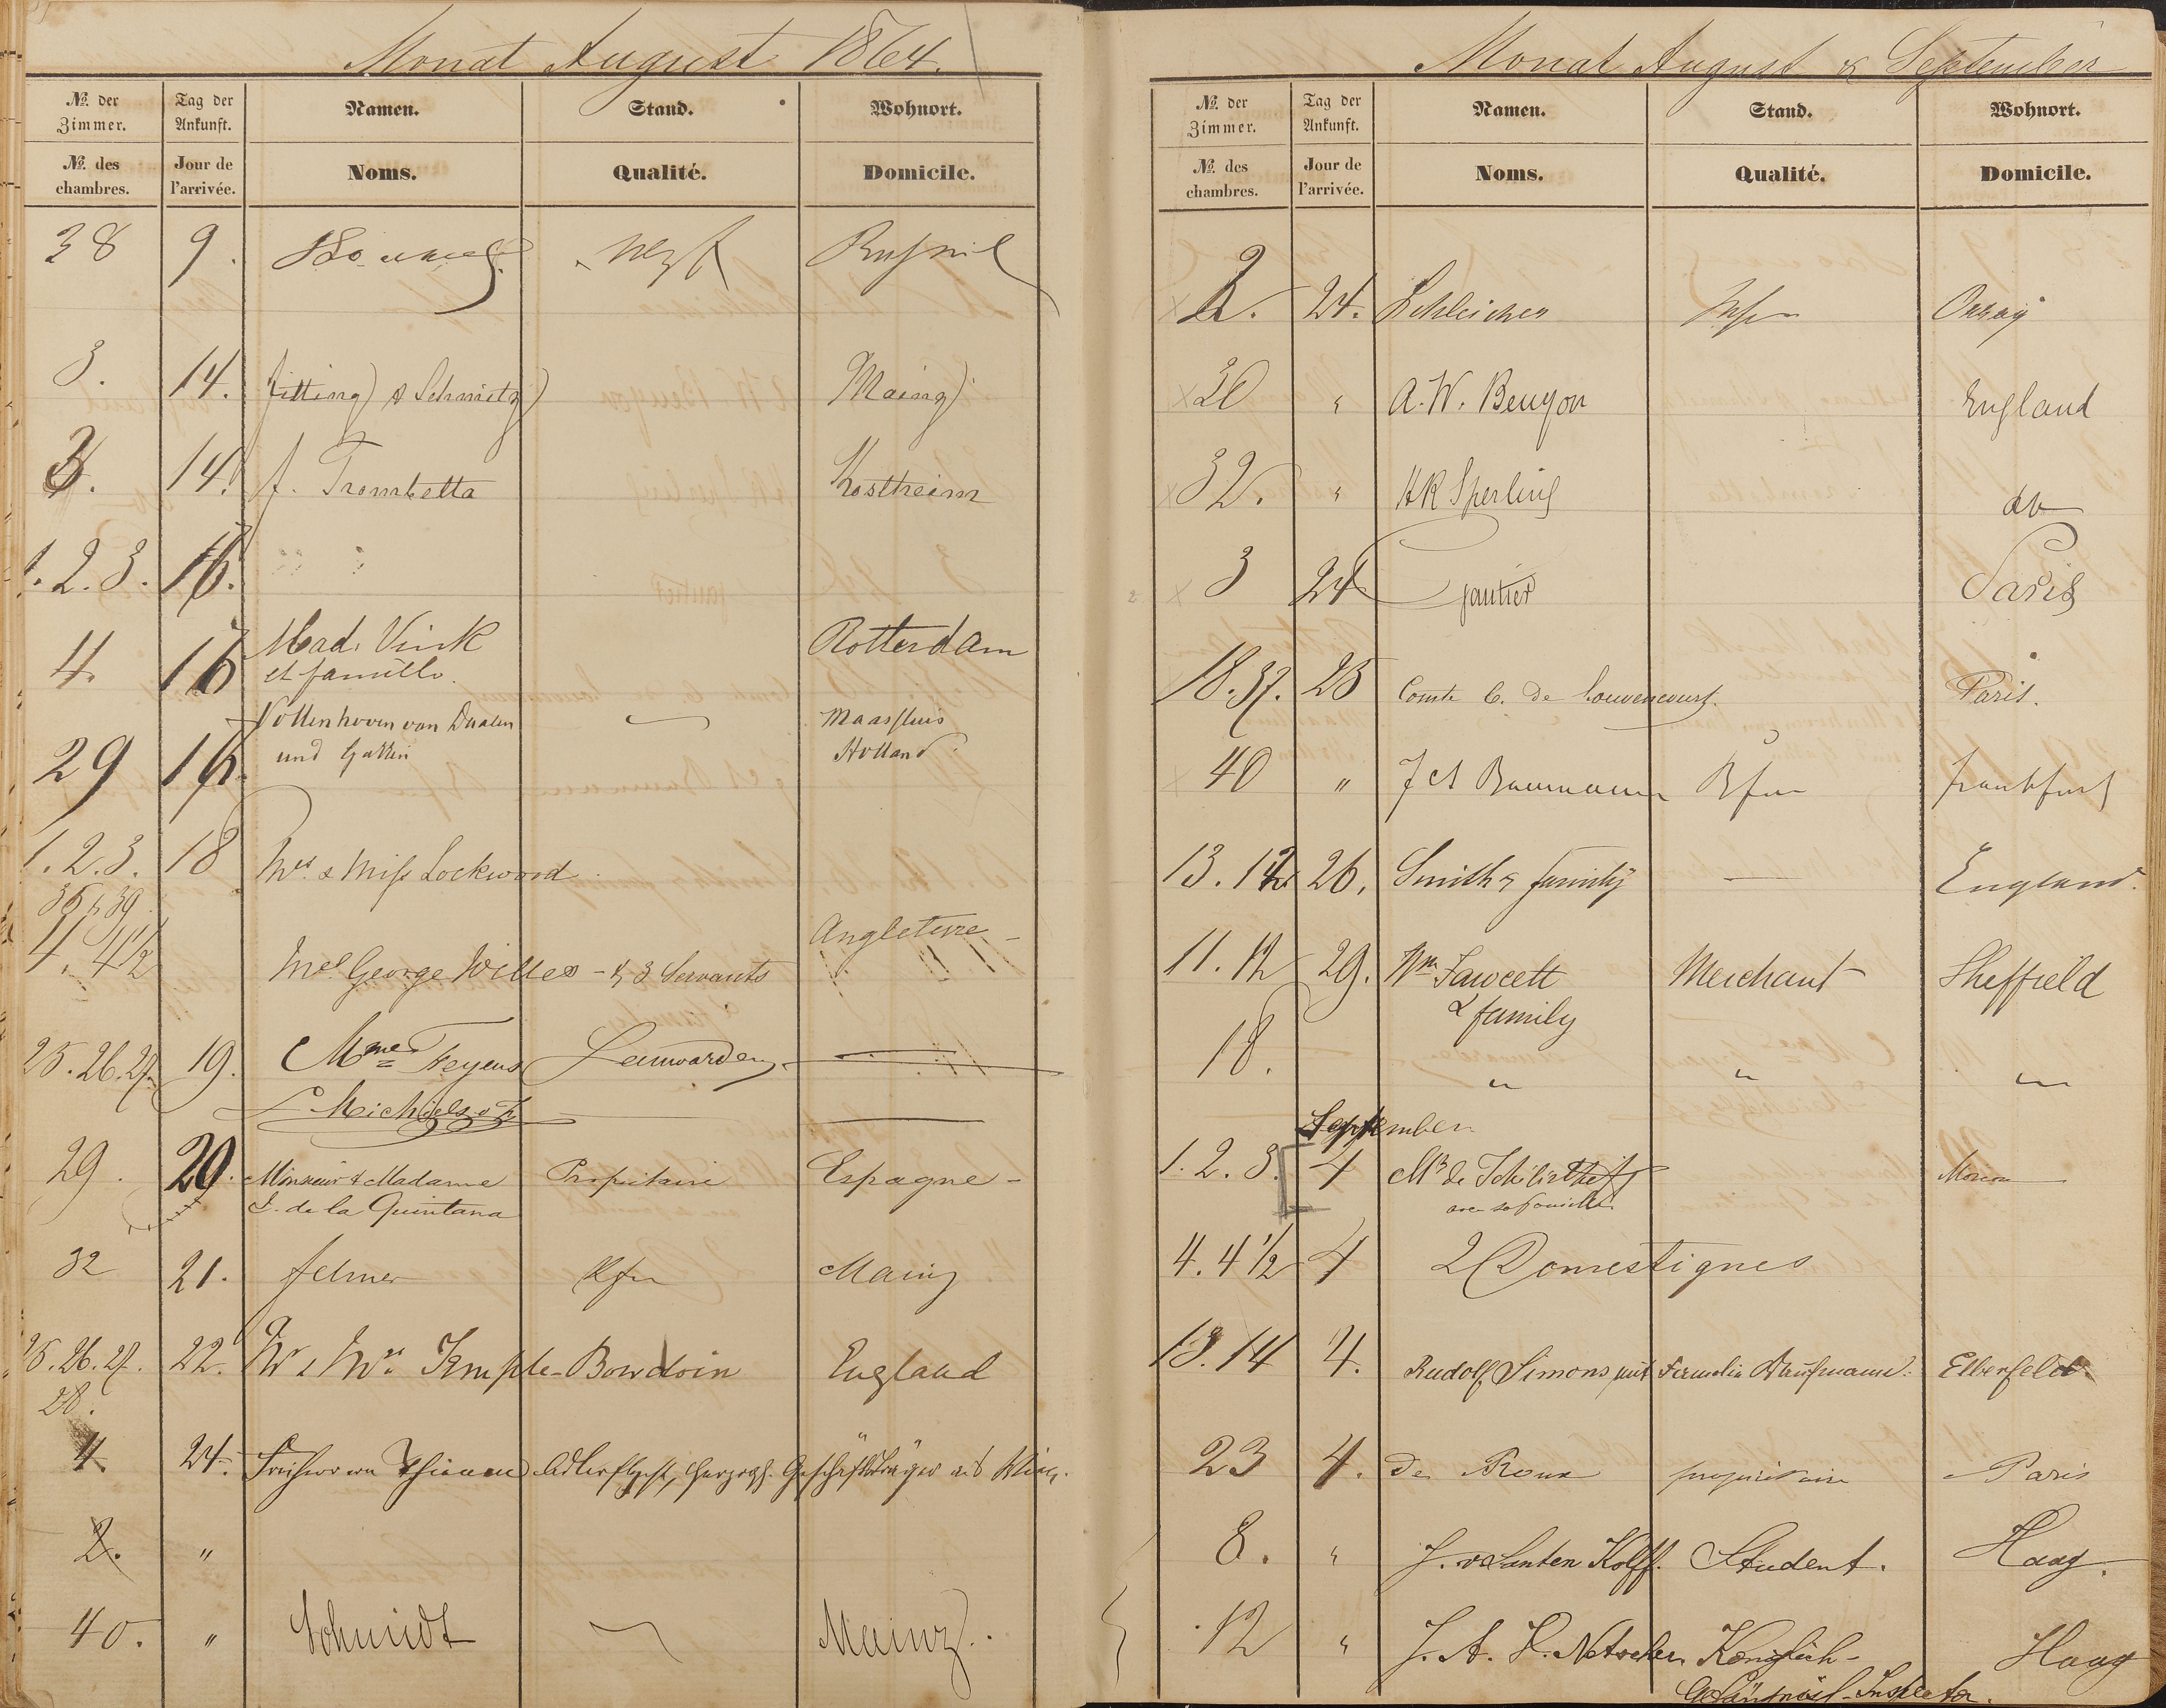 Monat August 1864.
№ der Zimmer. Tag der Ankunft. Namen. Stand. Wohnort.
№ des chambres. Jour de l'arrivée. Noms. Qualité. Domicile.
38 9.
3. 14. Fitting & Schmitz Mainz
3. 14. f. Trombetta Kostheim
1. 2. 3. 16.
4. 16 Mad. Vink Rotterdam
et famille.
Vollenhoven van Dualen Maassluis
29 16. und Gattin Holland
1. 2. 3. 18 Mrs. & Miss Lockwood
35 & 39
4. 4½ Angleterre
Mrs George Willes - & 3 Servants
25. 26. 27. 19. Mme Feyens Leeuwarden
29. 20. Monsieur & Madame Propritaire Espagne -
S. de la Quintana
32 21. felmer Kfm Mainz
25. 26. 27. 22. Mr & Mrs. Temple-Bowdoin England
28.
4. 24. Geschäftsträger
2. "
40. " Schmidt Mainz.
Monat August & September
№ der Zimmer. Tag der Ankunft. Namen. Stand. Wohnort.
№ des chambres. Jour de l'arrivée. Noms. Qualité. Domicile.
2. 24. Schleicher
30 " A. W. Benyon England
32. " HR Sperling do
3 24 Gautier Paris
18. 37. 25 Comte C. de Louvencourt. Paris.
40 " Baumann Kfm Frankfurt
13. 12 26. Smith & family England.
11. 12 29. Wm Fawcett Merchant Sheffield
& family
18. " " "
September
1. 2. 3. 4 Mr de
avec sa famille
4. 4½ 4 2 Domestiques
13. 14 4. Rudolf Simons mit Familie Kaufmann. Elberfeld.
23 4. de Roux propriétaire Paris
8. " J. v Santen Kolff. Student. Haag.
12 " J. A. H. Netscher Königlich- Haag
Gefängniss-Inspector.